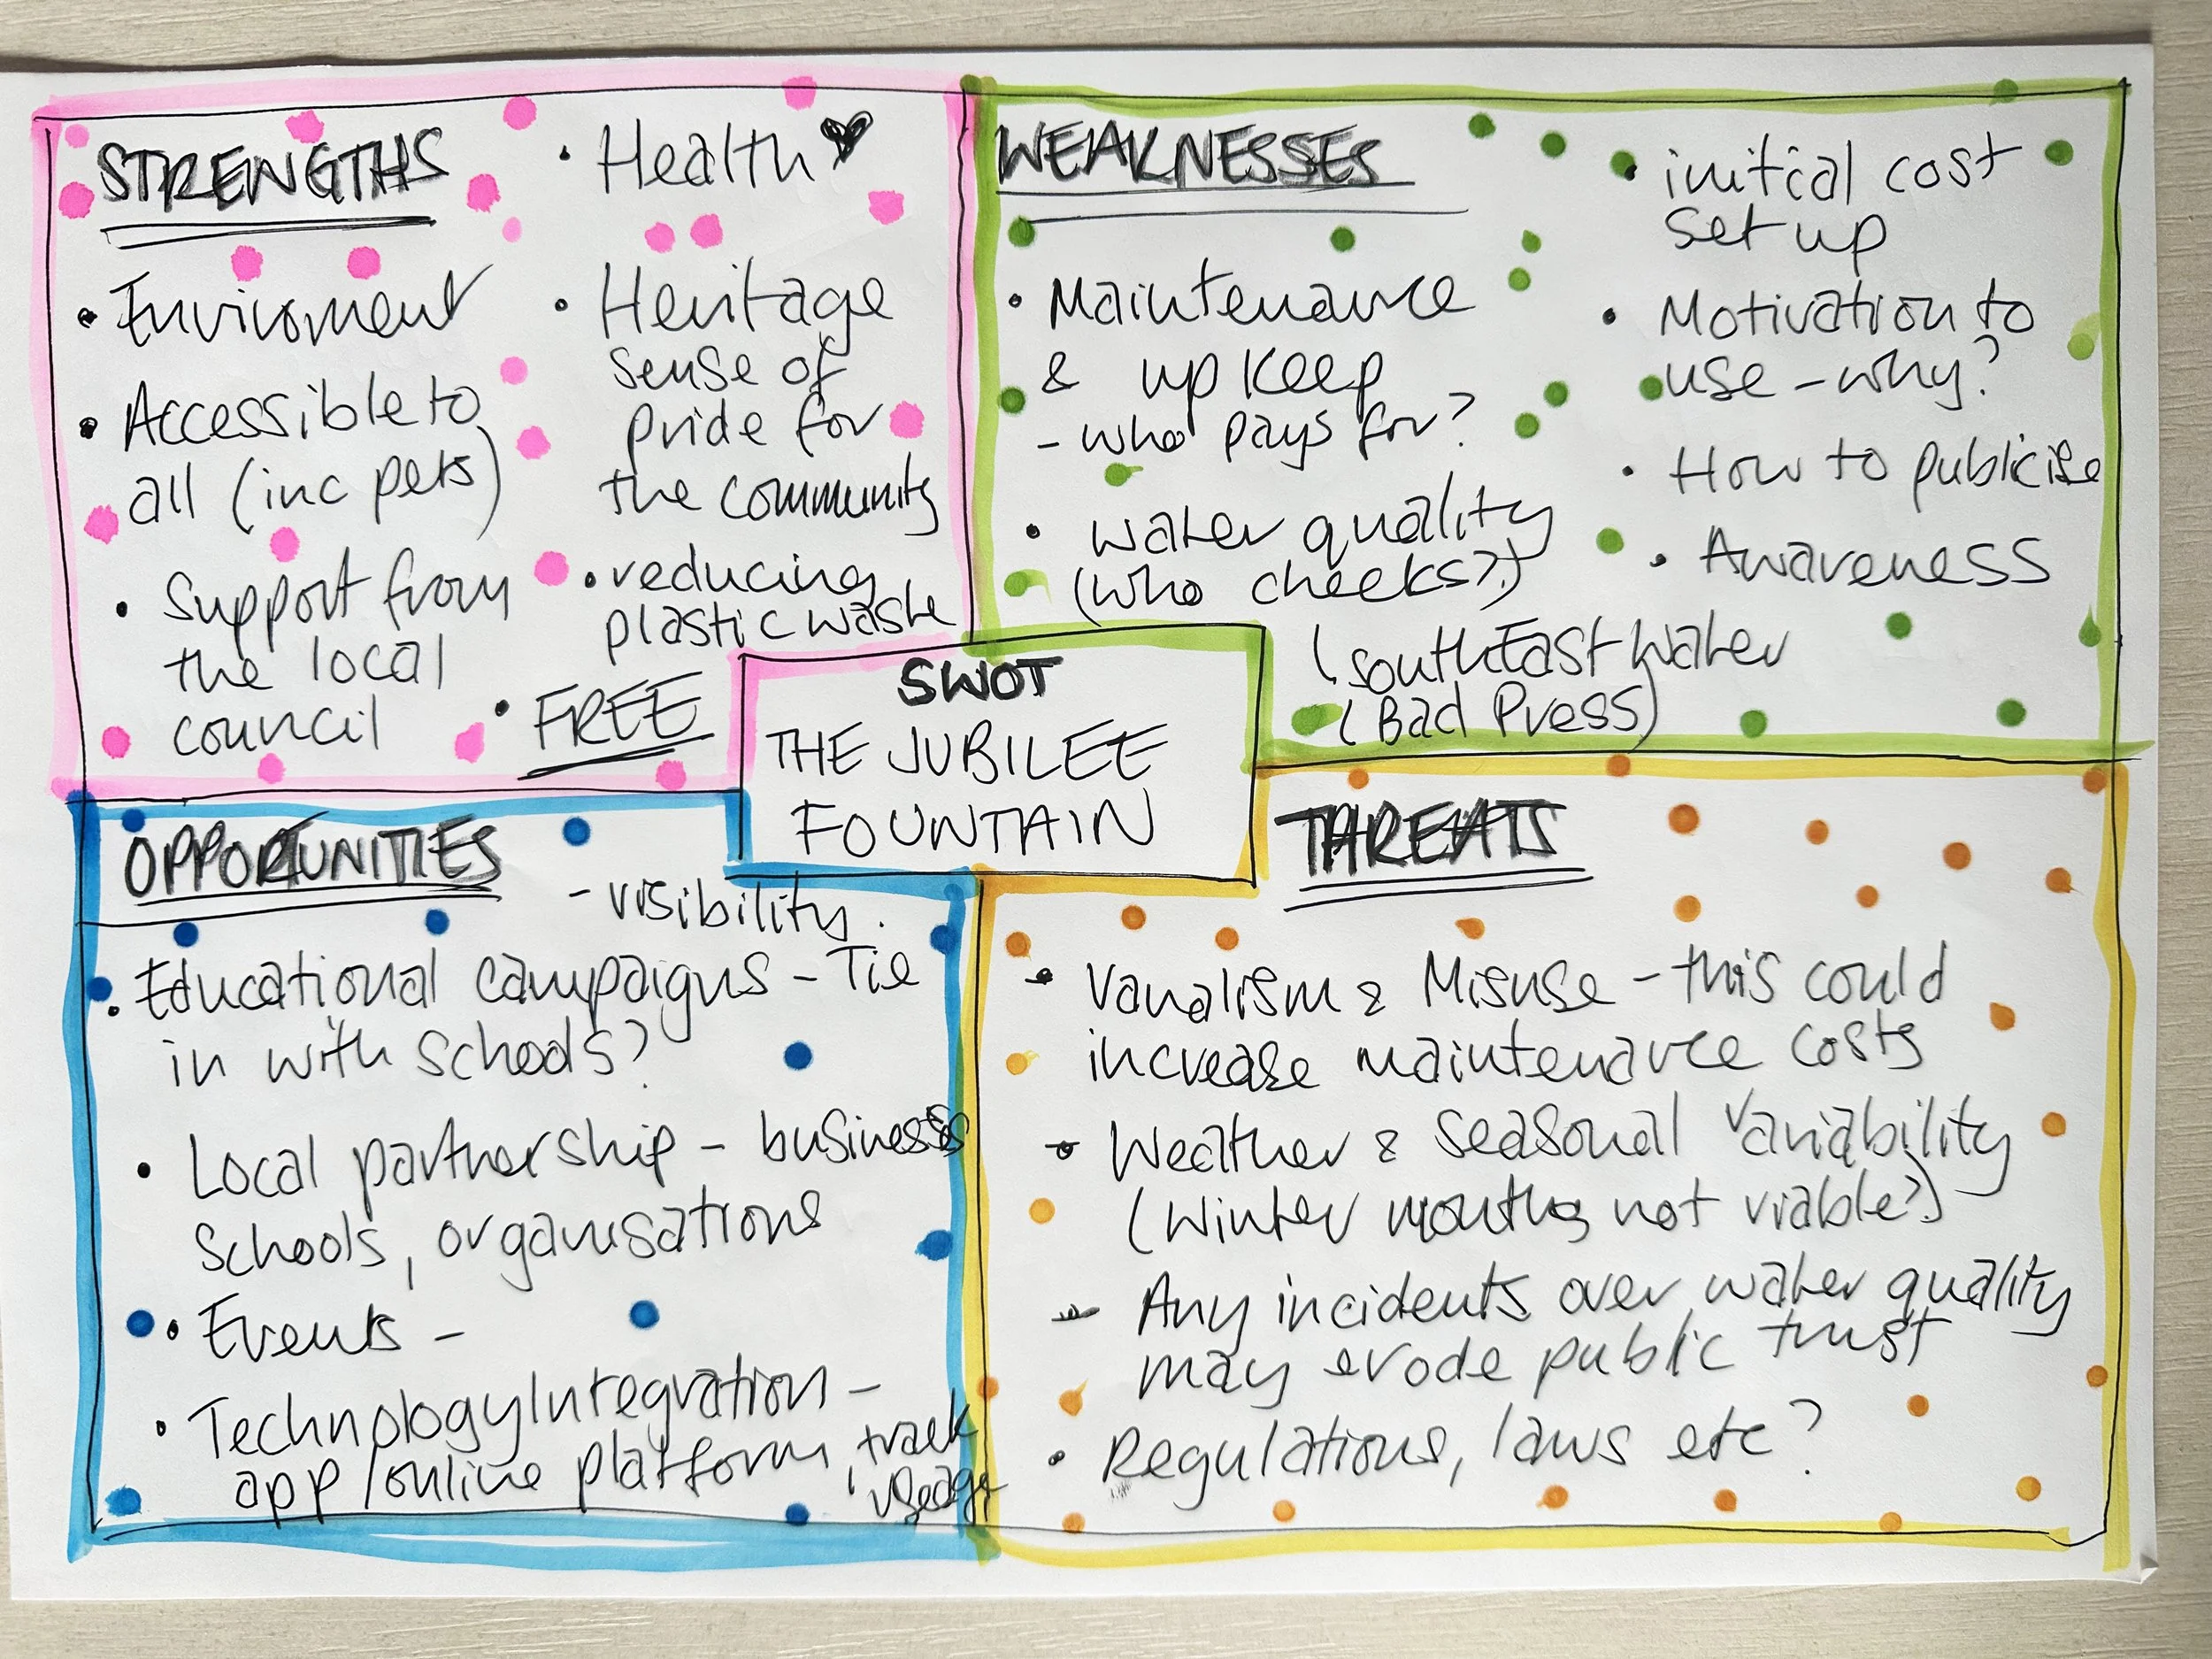 STRENGTHS
• Enviroment
• Accessible to
all (inc pets)
• Support from
the local
council
• Health
• Heritage
sense of
pride for
the community
• reducing
plastic waste
• FREE
WEAKNESSES
• Maintenance
& up keep
- who pays for?
• water quality
(who checks?)
(SouthEast Water
(Bad Press)
• initial cost
set up
• Motivation to
use - why?
• How to publicise
• Awareness
SWOT
THE JUBILEE
FOUNTAIN
OPPORUNITIES
- visibility.
• Educational campaigns - Tie
in with schools?
• Local partnership - business
Schools, organisations
• Events -
• Technology Integration -
app/online platform, track
useage
THREATS
• Vanalism & Misuse - this could
increase maintenance costs
• Weather & seasonal variability
(Winter months not viable?)
- Any incidents over water quality
may erode public trust
• Regulations, laws etc?